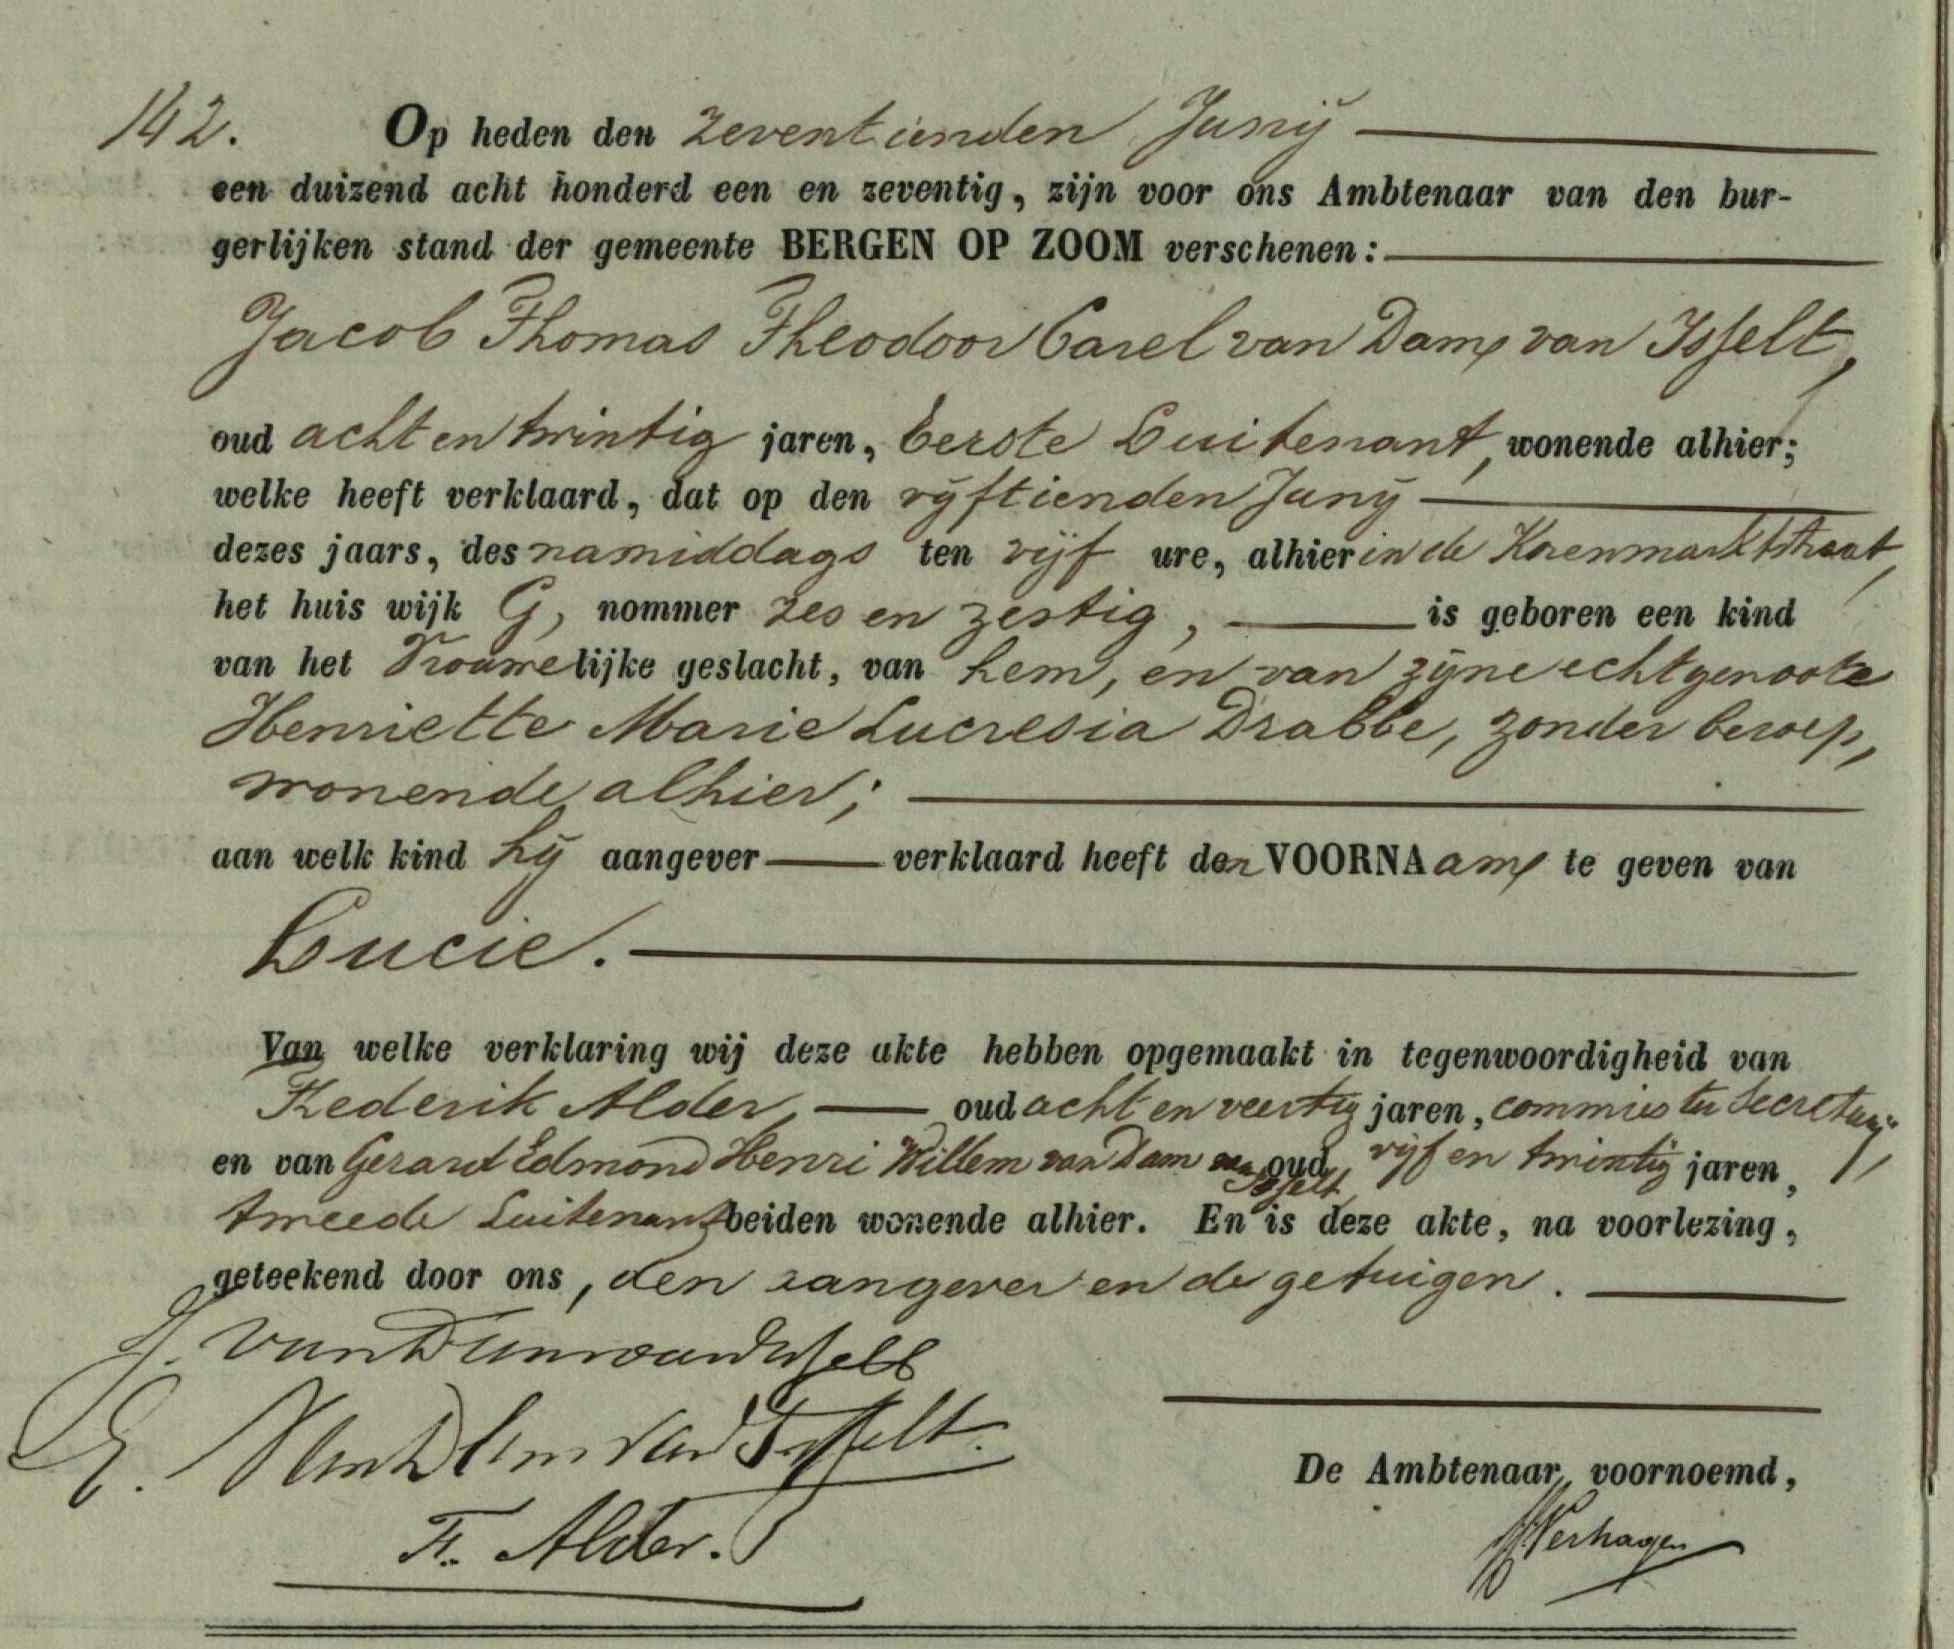 142. Op heden den zeventienden Junij
een duizend acht honderd een en zeventig, zijn voor ons Ambtenaar van den bur-
gerlijken stand der gemeente BERGEN OP ZOOM verschenen:
Jacob Thomas Theodoor Carel van Dam van Isselt,
oud acht en twintig jaren, Eerste Luitenant, wonende alhier;
welke heeft verklaard, dat op den vijftienden Junij
dezes jaars, des namiddags ten vijf ure, alhier in de Korenmarktstraat,
het huis wijk G, nommer zes en zestig, is geboren een kind
van het Vrouwelijke geslacht, van hem, en van zijne echtgenoote
Henriette Marie Lucresia Drabbe, zonder beroep,
wonende alhier;
aan welk kind hij aangever verklaard heeft den VOORNAam te geven van
Lucie.
Van welke verklaring wij deze akte hebben opgemaakt in tegenwoordigheid van
Frederik Alder, oud acht en veertig jaren, commies ter Secretarij,
en van Gerard Edmond Henri Willem van Dam van Isselt, oud vijf en twintig jaren,
tweede Luitenant beiden wonende alhier. En is deze akte, na voorlezing,
geteekend door ons, den aangever en de getuigen.
J. van Dam van Isselt
E. van Dam van Isselt.
De Ambtenaar voornoemd,
Fr. Alder.
Verhagen